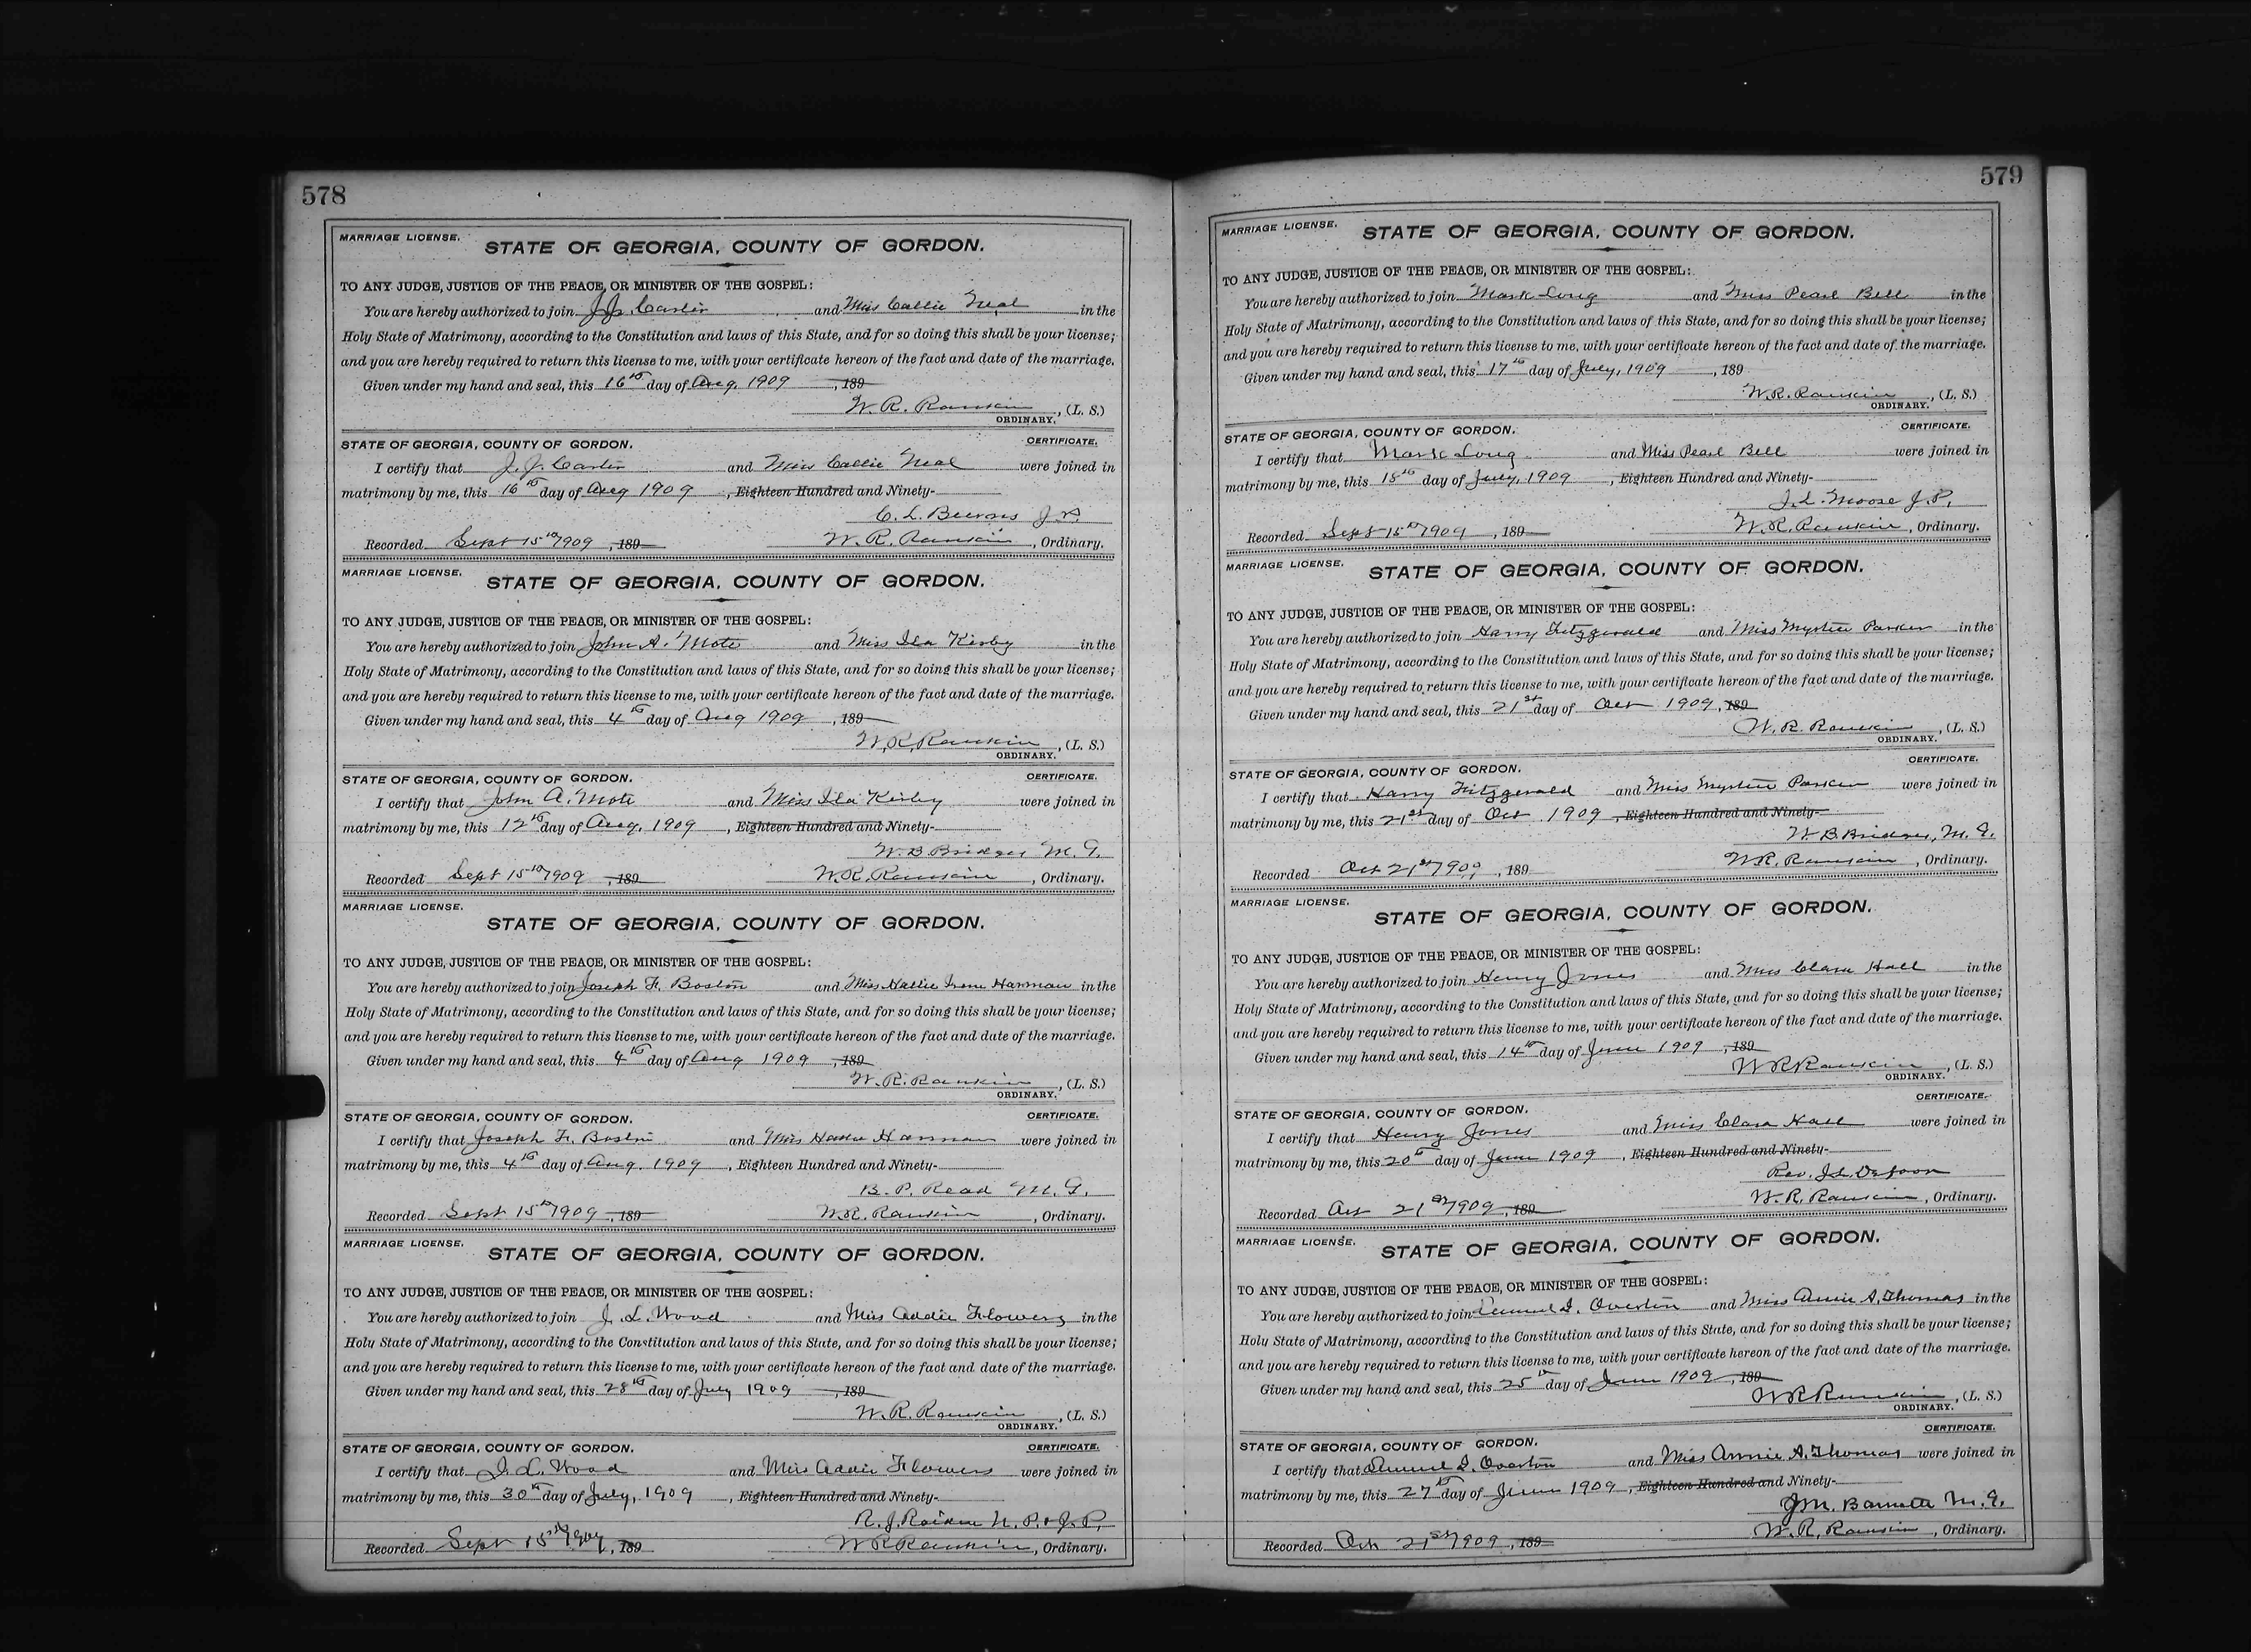 578
MARRIAGE LICENSE.
STATE OF GEORGIA, COUNTY OF GORDON.
TO ANY JUDGE, JUSTICE OF THE PEACE, OR MINISTER OF THE GOSPEL:
You are hereby authorized to join J. J. Carter and Miss Callie Neal in the
Holy State of Matrimony, according to the Constitution and laws of this State, and for so doing this shall be your license;
and you are hereby required to return this license to me, with your certificate hereon of the fact and date of the marriage.
Given under my hand and seal, this 16th day of Aug. 1909, 189
W. R. Rankin, (L. S.)
ORDINARY.
STATE OF GEORGIA, COUNTY OF GORDON. CERTIFICATE.
I certify that J. J. Carter and Miss Callie Neal were joined in
matrimony by me, this 16th day of Aug 1909, Eighteen Hundred and Ninety-
C. L. J.P.
Recorded Sept 15th 1909, 189 W. R. Rankin, Ordinary.
MARRIAGE LICENSE.
STATE OF GEORGIA, COUNTY OF GORDON.
TO ANY JUDGE, JUSTICE OF THE PEACE, OR MINISTER OF THE GOSPEL:
You are hereby authorized to join John A. Mote and Miss Ila Kirby in the
Holy State of Matrimony, according to the Constitution and laws of this State, and for so doing this shall be your license;
and you are hereby required to return this license to me, with your certificate hereon of the fact and date of the marriage.
Given under my hand and seal, this 4th day of Aug 1909, 189
W. R. Rankin, (L. S.)
ORDINARY.
STATE OF GEORGIA, COUNTY OF GORDON. CERTIFICATE.
I certify that John A. Mote and Miss Ila Kirby were joined in
matrimony by me, this 12th day of Aug. 1909, Eighteen Hundred and Ninety-
W. B. Bridges M. G.
Recorded Sept 15th 1909, 189 W. R. Rankin, Ordinary.
MARRIAGE LICENSE.
STATE OF GEORGIA, COUNTY OF GORDON.
TO ANY JUDGE, JUSTICE OF THE PEACE, OR MINISTER OF THE GOSPEL:
You are hereby authorized to join Joseph F. Boston and Miss Hallie Irene Harman in the
Holy State of Matrimony, according to the Constitution and laws of this State, and for so doing this shall be your license;
and you are hereby required to return this license to me, with your certificate hereon of the fact and date of the marriage.
Given under my hand and seal, this 4th day of Aug 1909, 189
W. R. Rankin, (L. S.)
ORDINARY.
STATE OF GEORGIA, COUNTY OF GORDON. CERTIFICATE.
I certify that Joseph F. Boston and Miss Harman were joined in
matrimony by me, this 4th day of Aug. 1909, Eighteen Hundred and Ninety-
B. P. Read M. G.
Recorded Sept 15th 1909, 189 W. R. Rankin, Ordinary.
MARRIAGE LICENSE.
STATE OF GEORGIA, COUNTY OF GORDON.
TO ANY JUDGE, JUSTICE OF THE PEACE, OR MINISTER OF THE GOSPEL:
You are hereby authorized to join J. L. Wood and Miss Addie Flowers in the
Holy State of Matrimony, according to the Constitution and laws of this State, and for so doing this shall be your license;
and you are hereby required to return this license to me, with your certificate hereon of the fact and date of the marriage.
Given under my hand and seal, this 28th day of July 1909, 189
W. R. Rankin, (L. S.)
ORDINARY.
STATE OF GEORGIA, COUNTY OF GORDON. CERTIFICATE.
I certify that J. L. Wood and Miss Addie Flowers were joined in
matrimony by me, this 30th day of July, 1909, Eighteen Hundred and Ninety-
R. J. N. P. & J. P.
Recorded Sept 15th 1909, 189 W R Rankin, Ordinary.
579
MARRIAGE LICENSE.
STATE OF GEORGIA, COUNTY OF GORDON.
TO ANY JUDGE, JUSTICE OF THE PEACE, OR MINISTER OF THE GOSPEL:
You are hereby authorized to join Mark Long and Miss Pearl Bell in the
Holy State of Matrimony, according to the Constitution and laws of this State, and for so doing this shall be your license;
and you are hereby required to return this license to me, with your certificate hereon of the fact and date of the marriage.
Given under my hand and seal, this 17th day of July, 1909, 189
W. R. Rankin, (L. S.)
ORDINARY.
STATE OF GEORGIA, COUNTY OF GORDON. CERTIFICATE.
I certify that Mark Long and Miss Pearl Bell were joined in
matrimony by me, this 18th day of July, 1909, Eighteen Hundred and Ninety-
J. L. Moose J. P.
Recorded Sept 15th 1909, 189 W. R. Rankin, Ordinary.
MARRIAGE LICENSE.
STATE OF GEORGIA, COUNTY OF GORDON.
TO ANY JUDGE, JUSTICE OF THE PEACE, OR MINISTER OF THE GOSPEL:
You are hereby authorized to join Harry Fitzgerald and Miss Myrtice Parker in the
Holy State of Matrimony, according to the Constitution and laws of this State, and for so doing this shall be your license;
and you are hereby required to return this license to me, with your certificate hereon of the fact and date of the marriage.
Given under my hand and seal, this 21st day of Oct 1909, 189
W. R. Rankin, (L. S.)
ORDINARY.
STATE OF GEORGIA, COUNTY OF GORDON. CERTIFICATE.
I certify that Harry Fitzgerald and Miss Myrtice Parker were joined in
matrimony by me, this 21st day of Oct 1909, Eighteen Hundred and Ninety-
W. B. Bridges, M. G.
Recorded Oct 21st 1909, 189 W. R. Rankin, Ordinary.
MARRIAGE LICENSE.
STATE OF GEORGIA, COUNTY OF GORDON.
TO ANY JUDGE, JUSTICE OF THE PEACE, OR MINISTER OF THE GOSPEL:
You are hereby authorized to join Henry Jones and Miss Clara Hall in the
Holy State of Matrimony, according to the Constitution and laws of this State, and for so doing this shall be your license;
and you are hereby required to return this license to me, with your certificate hereon of the fact and date of the marriage.
Given under my hand and seal, this 14th day of June 1909, 189
W R Rankin, (L. S.)
ORDINARY.
STATE OF GEORGIA, COUNTY OF GORDON. CERTIFICATE.
I certify that Henry Jones and Miss Clara Hall were joined in
matrimony by me, this 20th day of June 1909, Eighteen Hundred and Ninety-
Rev. J. L.
Recorded Oct 21st 1909, 189 W. R. Rankin, Ordinary.
MARRIAGE LICENSE.
STATE OF GEORGIA, COUNTY OF GORDON.
TO ANY JUDGE, JUSTICE OF THE PEACE, OR MINISTER OF THE GOSPEL:
You are hereby authorized to join Overton and Miss Annie A. Thomas in the
Holy State of Matrimony, according to the Constitution and laws of this State, and for so doing this shall be your license;
and you are hereby required to return this license to me, with your certificate hereon of the fact and date of the marriage.
Given under my hand and seal, this 25th day of June 1909, 189
W R Rankin, (L. S.)
ORDINARY.
STATE OF GEORGIA, COUNTY OF GORDON. CERTIFICATE.
I certify that Overton and Miss Annie A. Thomas were joined in
matrimony by me, this 27th day of June 1909, Eighteen Hundred and Ninety-
J. M. Barnette M. G.
Recorded Oct 21st 1909, 189 W. R. Rankin, Ordinary.